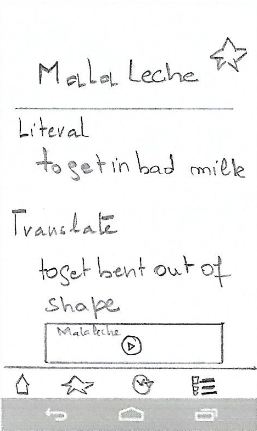 Mala Leche
Literal
to get in bad milk
Translate
to get bent out of
shape
Mala leche